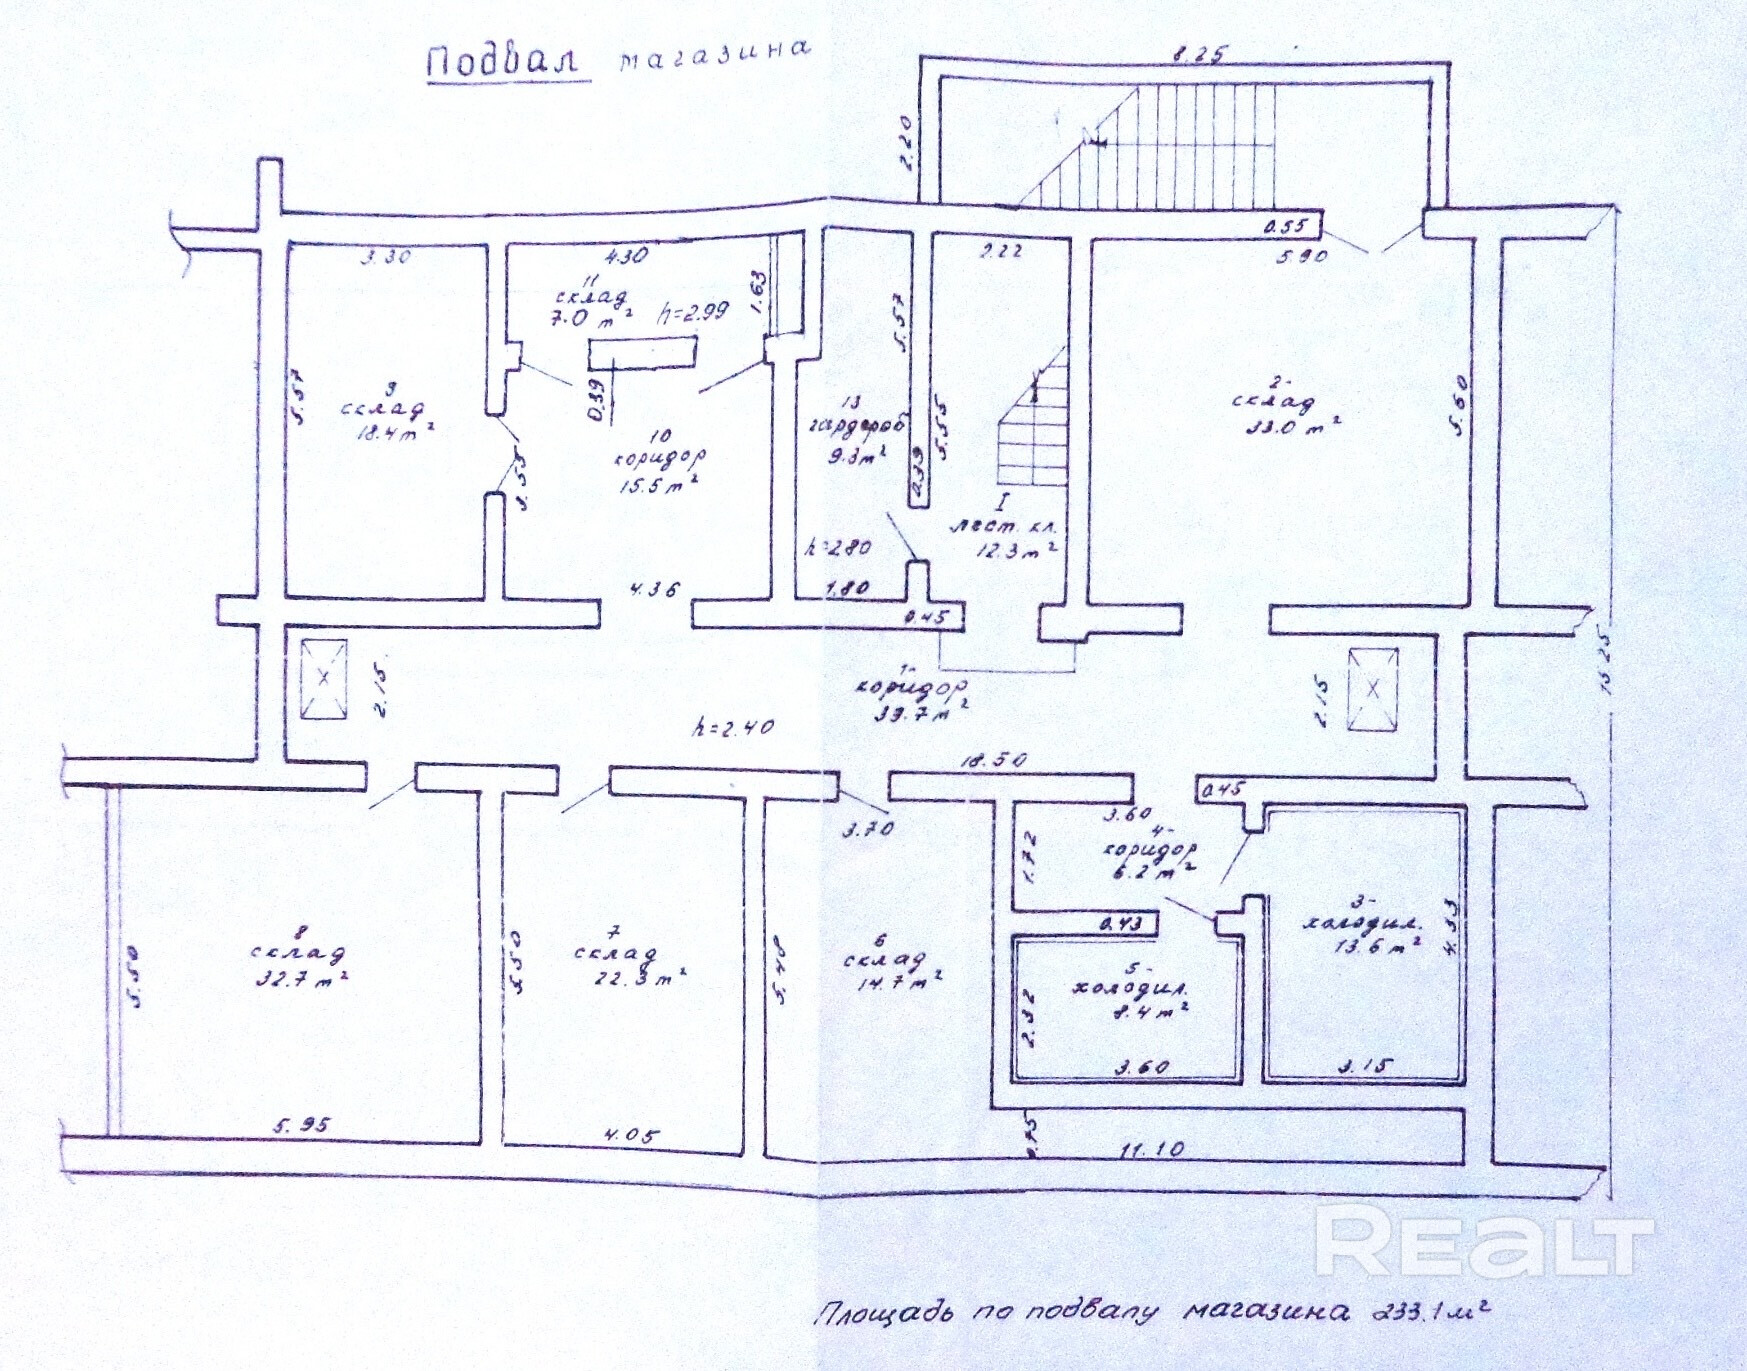 Подвал магазина
8.25
2.20
0.55
5.90
3.30
4.30
2.22
11
склад
7.0 m²
h=2.99
1.63
5.57
5.57
0.39
9
склад
18.4 m²
10
коридор
15.5 m²
13
гардероб
9.3 m²
5.55
0.39
2
склад
33.0 m²
5.60
I
лест. кл.
12.3 m²
h=2.80
4.36
1.80
0.45
2.15
1
коридор
39.7 m²
h=2.40
2.15
15.25
18.50
0.45
3.70
3.60
4
коридор
6.2 m²
1.72
0.43
3
холодил.
13.6 m²
4.33
8
склад
32.7 m²
5.50
7
склад
22.3 m²
5.50
6
склад
14.7 m²
5.48
5
холодил.
8.4 m²
2.32
3.60
3.15
5.95
4.05
0.75
11.10
REALT
Площадь по подвалу магазина 233.1 м²